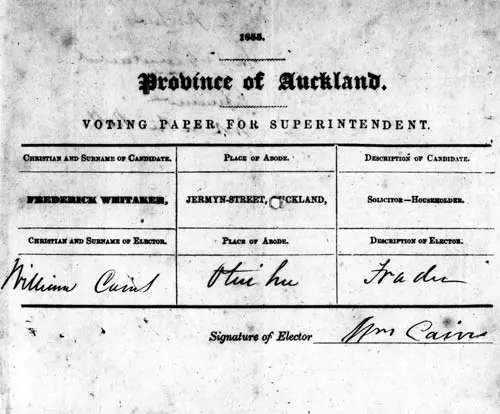 1855.
Province of Auckland.
VOTING PAPER FOR SUPERINTENDENT.
CHRISTIAN AND SURNAME OF CANDIDATE. PLACE OF ABODE. DESCRIPTION OF CANDIDATE.
FREDERICK WHITAKER, JERMYN-STREET, UCKLAND, SOLICITOR—HOUSEHOLDER.
CHRISTIAN AND SURNAME OF ELECTOR. PLACE OF ABODE. DESCRIPTION OF ELECTOR.
William Cairns Otuihu Trader
Signature of Elector Wm Cairns